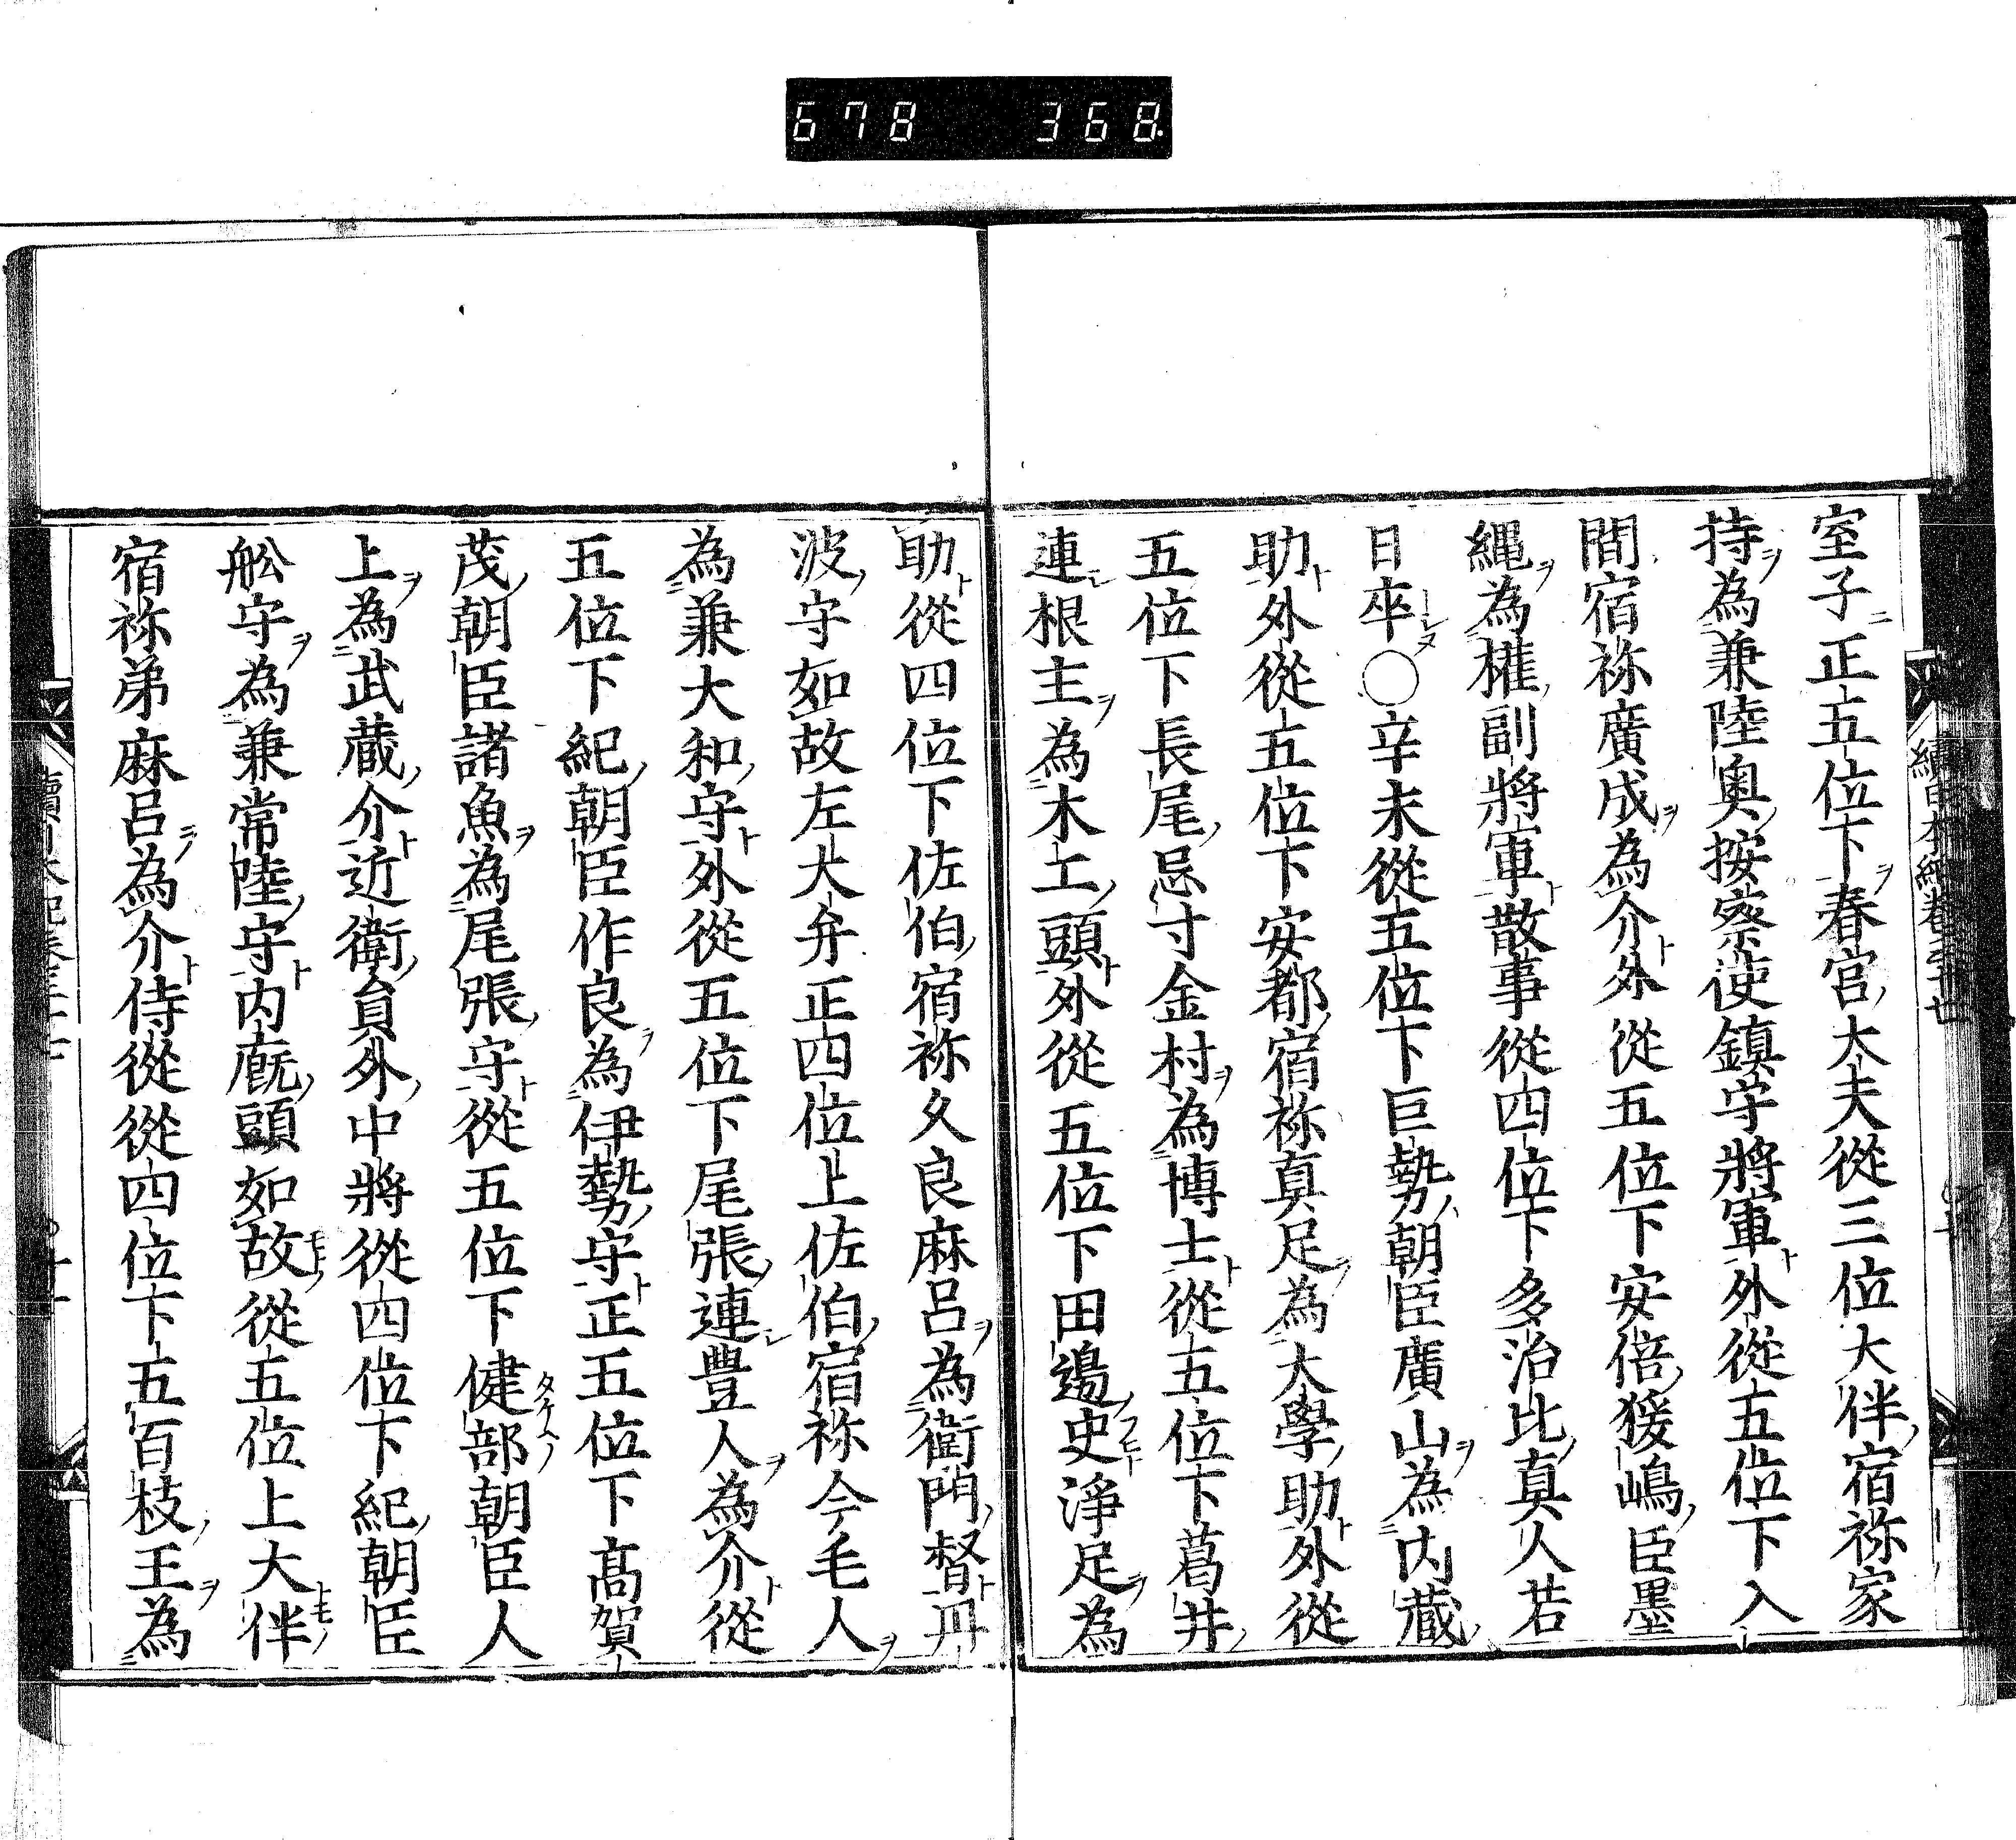 678 368.
室子正五位下春宮大夫從三位大伴宿祢家
持為兼陸奧按察使鎮守將軍外從五位下入
間宿祢廣成為介外從五位下安倍猨嶋臣墨
縄為權副將軍散事從四位下多治比真人若
日卒○辛未從五位下巨勢朝臣廣山為内藏
助外從五位下安都宿祢真足為大學助外從
五位下長尾忌寸金村為博士從五位下葛井
連根主為木工頭外從五位下田邊史淨足為
助從四位下佐伯宿祢久良麻呂為衛門督丹
波守如故左大弁正四位上佐伯宿祢今毛人
為兼大和守外從五位下尾張連豊人為介從
五位下紀朝臣作良為伊勢守正五位下髙賀
茂朝臣諸魚為尾張守從五位下健部朝臣人
上為武藏介近衛員外中將從四位下紀朝臣
舩守為兼常陸守内廐頭如故從五位上大伴
宿祢弟麻呂為介侍從從四位下五百枝王為